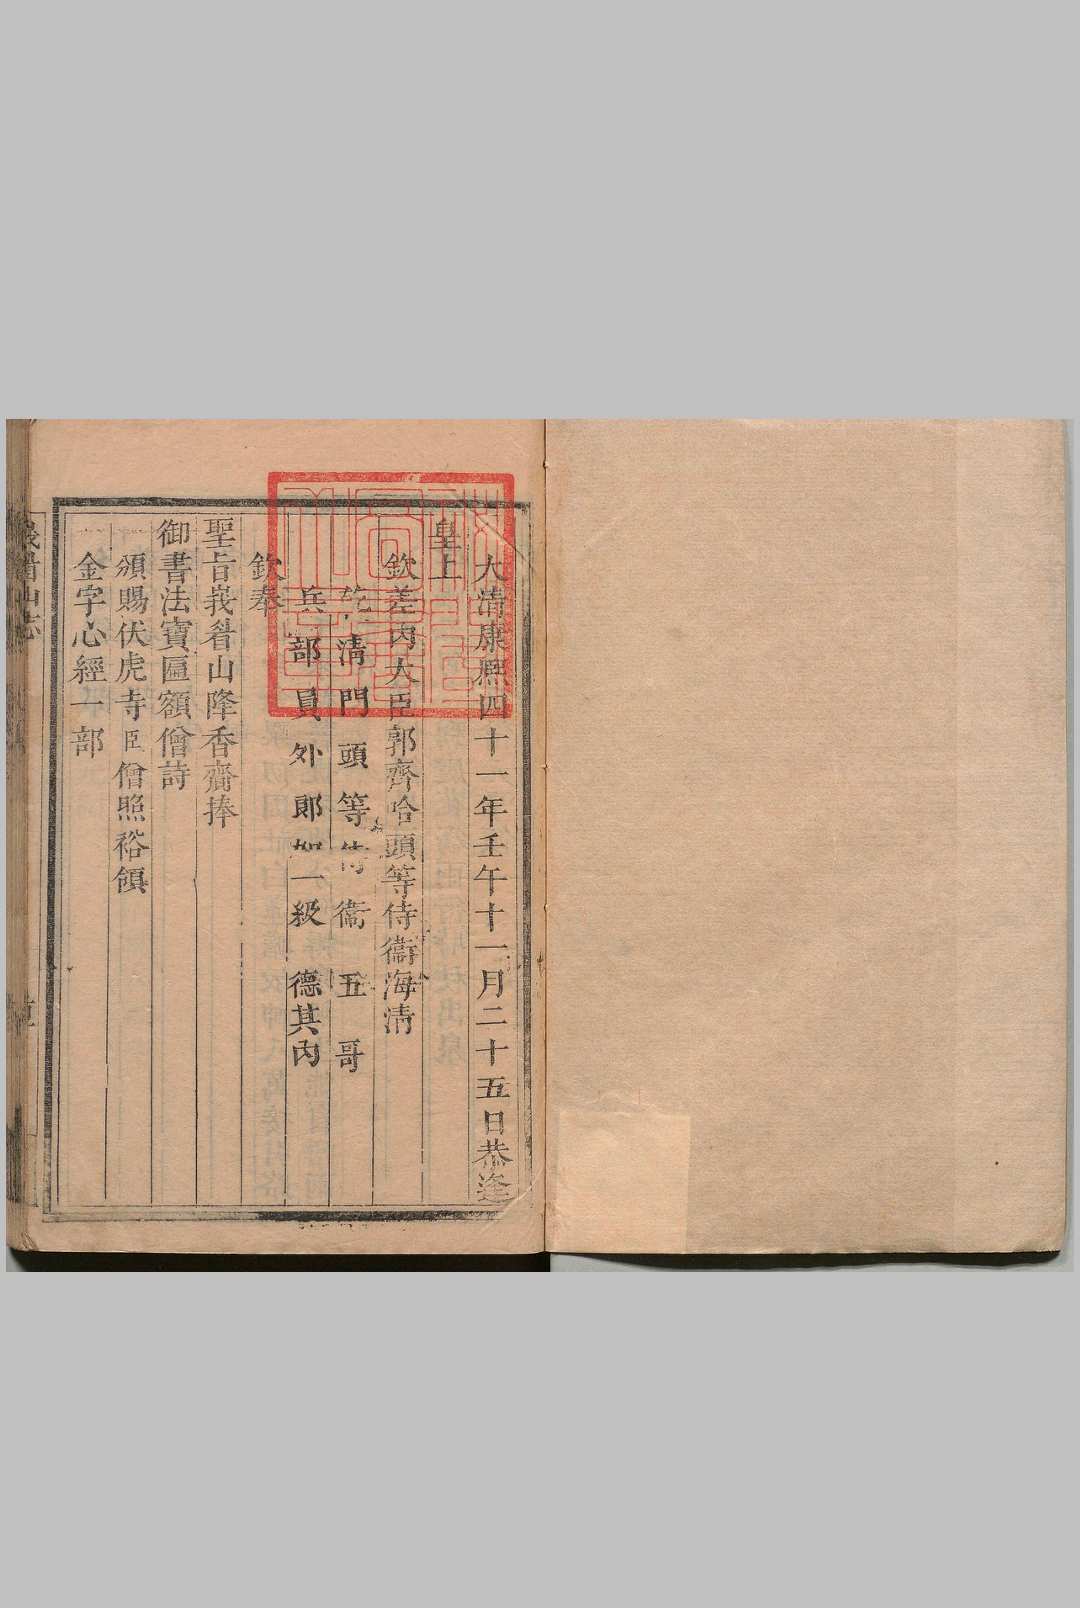 大清康熙四十一年壬午十一月二十五日恭逢
皇上
欽差内大臣郭齊哈頭等侍衞海清
乾清門頭等侍衞五哥
兵部員外郎加一級德其内
欽奉
聖旨峩眷山降香齎捧
御書法寶匾額僧詩
頒賜伏虎寺臣僧照裕領
金字心經一部
峩眷山志